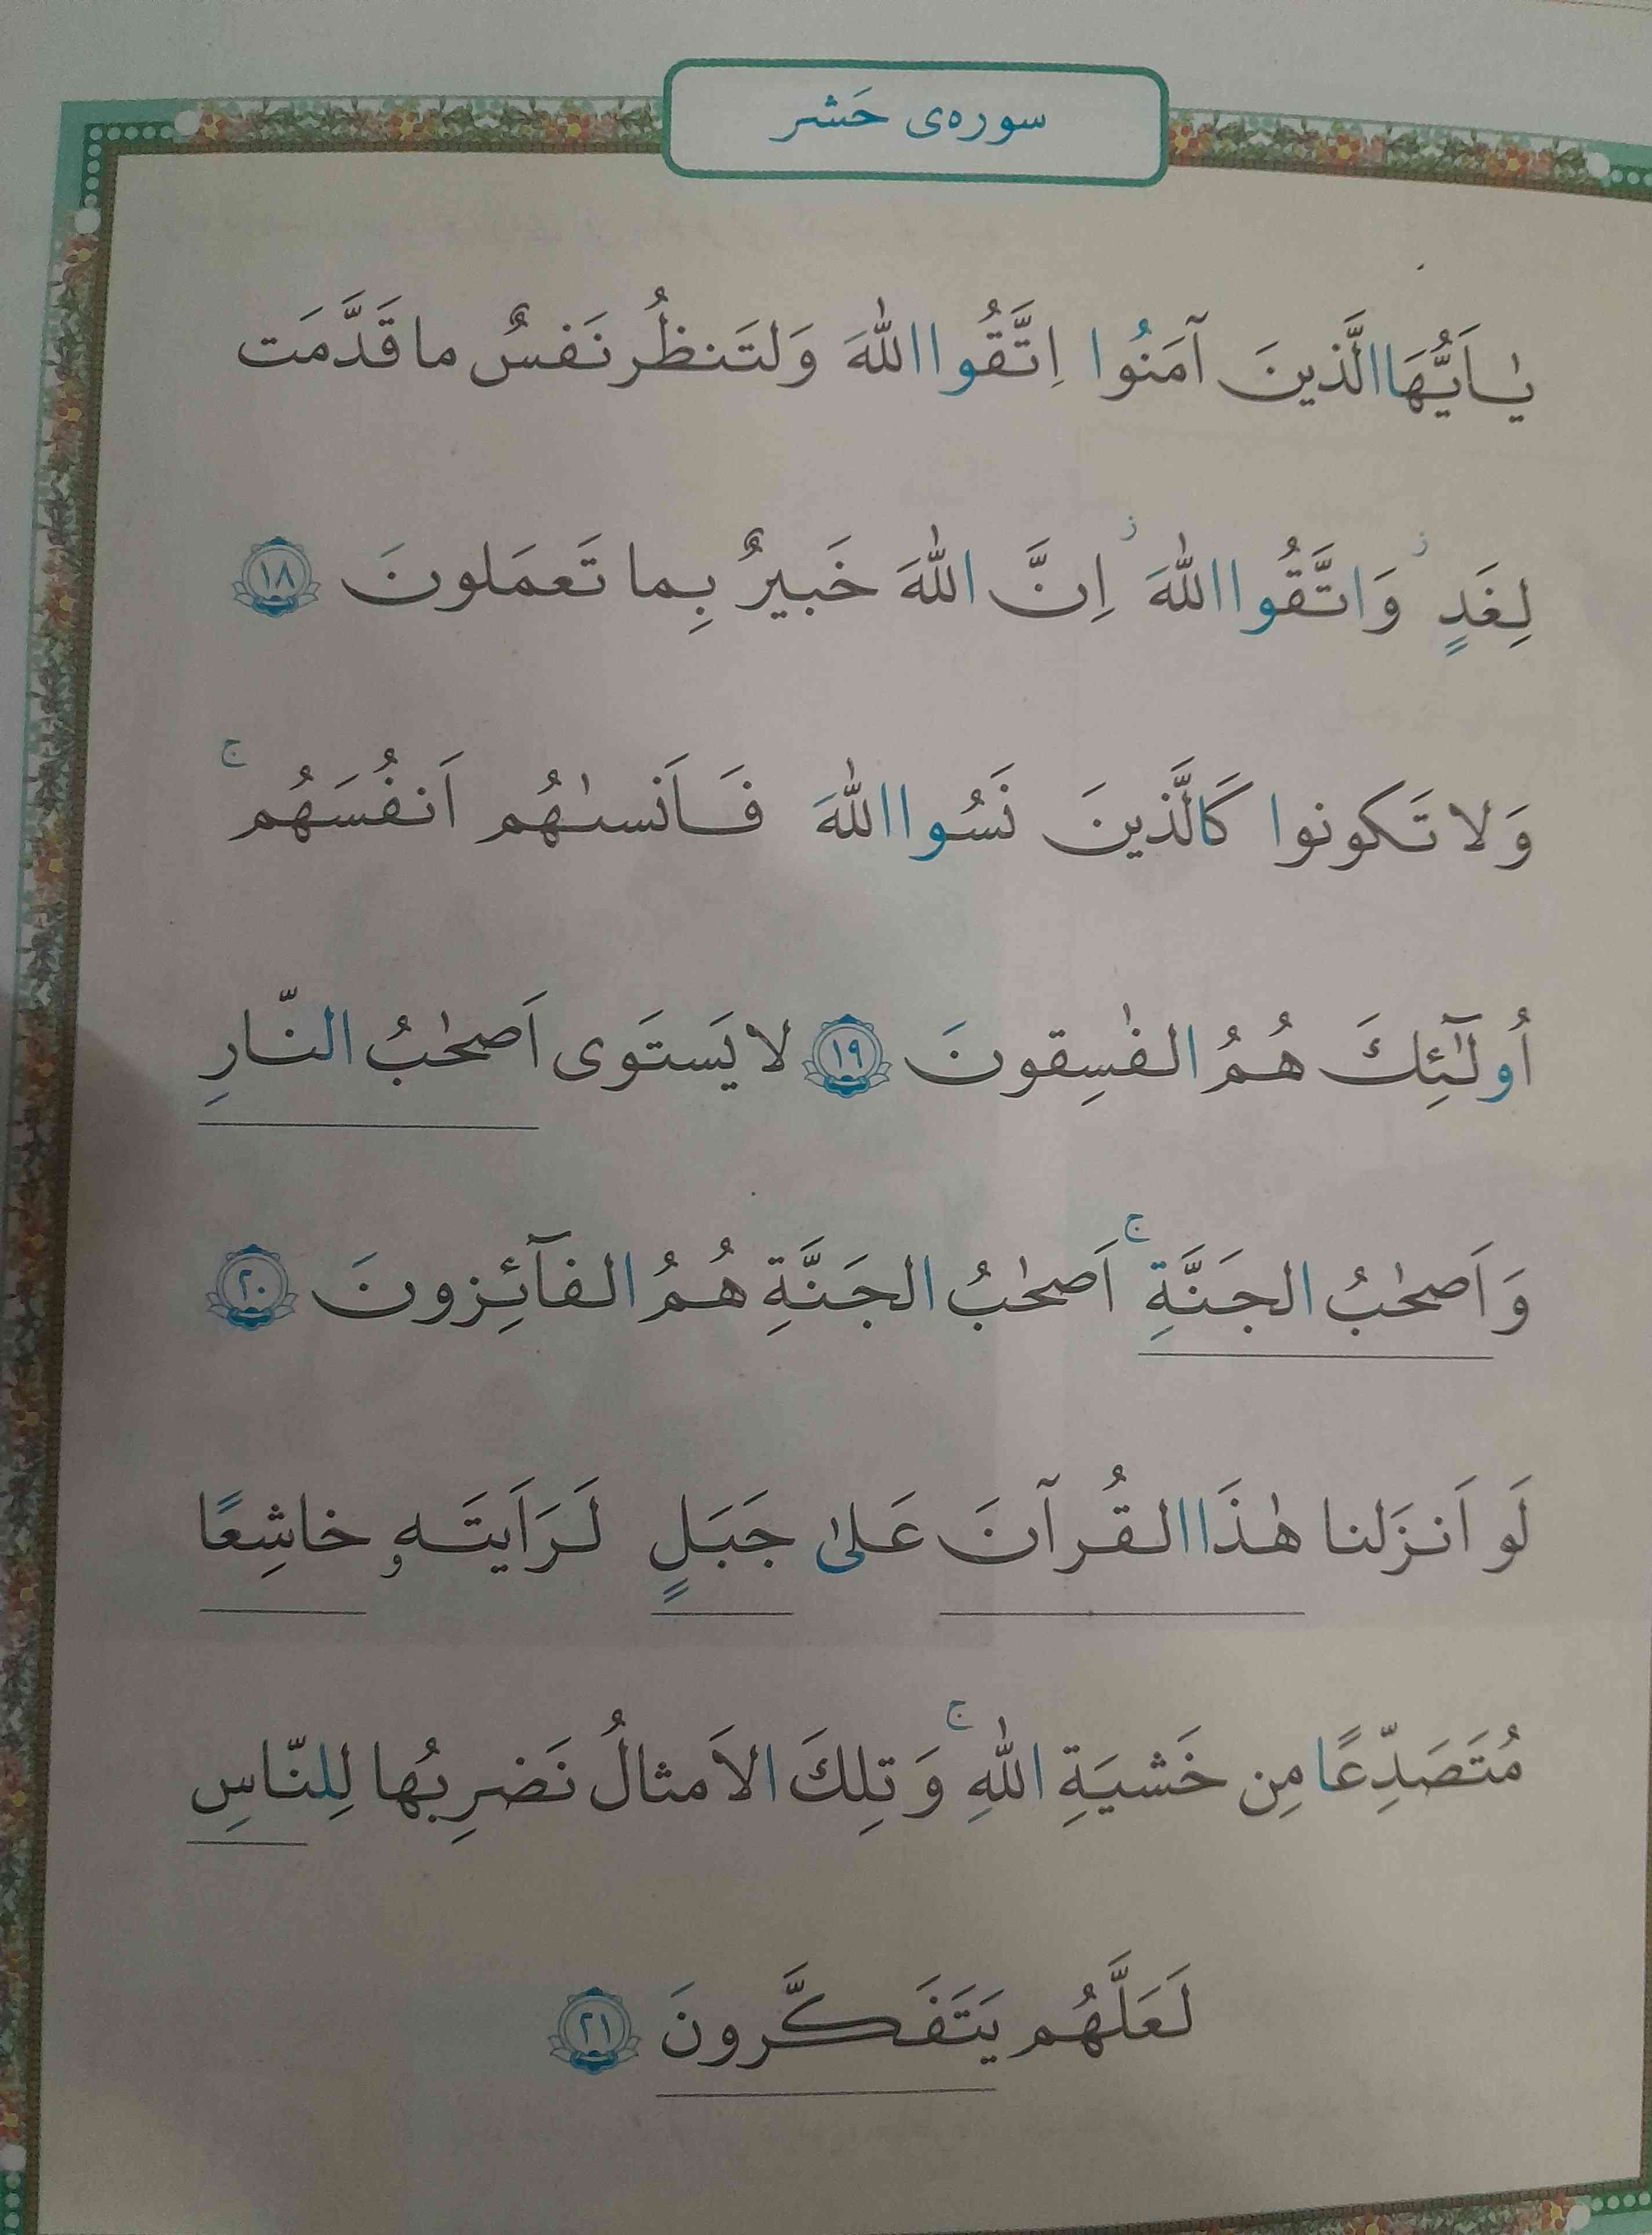 سوره‌ی حَشر
یٰاَیُّهَا الَّذینَ آمَنُوا اِتَّقُوا اللّٰهَ وَلتَنظُر نَفسٌ ما قَدَّمَت
لِغَدٍ ۖز وَ اتَّقُوا اللّٰهَ ز اِنَّ اللّٰهَ خَبیرٌ بِما تَعمَلونَ ١٨
وَ لا تَکونوا کَالَّذینَ نَسُوا اللّٰهَ فَاَنسىٰهُم اَنفُسَهُم ج
اُولٰٓئِكَ هُمُ الفٰسِقونَ ١٩ لا یَستَوی اَصحٰبُ النّارِ
وَ اَصحٰبُ الجَنَّةِ ج اَصحٰبُ الجَنَّةِ هُمُ الفآئِزونَ ٢٠
لَو اَنزَلنا هٰذَا القُرآنَ عَلىٰ جَبَلٍ لَرَاَیتَهو خاشِعًا
مُتَصَدِّعًا مِن خَشیَةِ اللّٰهِ ج وَ تِلكَ الاَمثالُ نَضرِبُها لِلنّاسِ
لَعَلَّهُم یَتَفَکَّرونَ ٢١